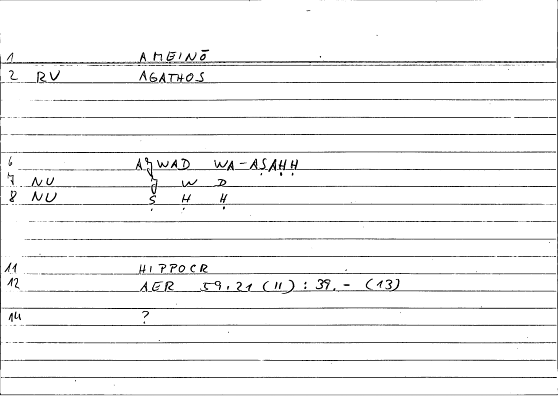 1 AMEINŌ
2 RV AGATHOS
6 AǦWAD WA-AṢAḤḤ
7 NU Ǧ W D
8 NU Ṣ Ḥ Ḥ
11 HIPPOCR
12 AER 59.21 (11) : 39.- (13)
14 ?